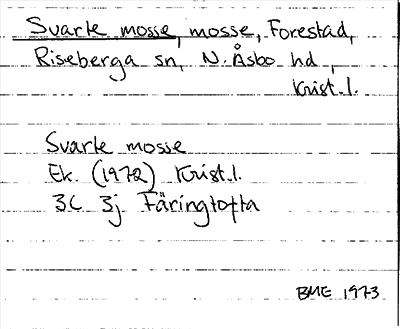 Svarte mosse, mosse, Forestad,
Riseberga sn, N. Åsbo hd,
Krist.l.
Svarte mosse
Ek. (1972) Krist.l.
3C 3j Färingtofta
BME 1973